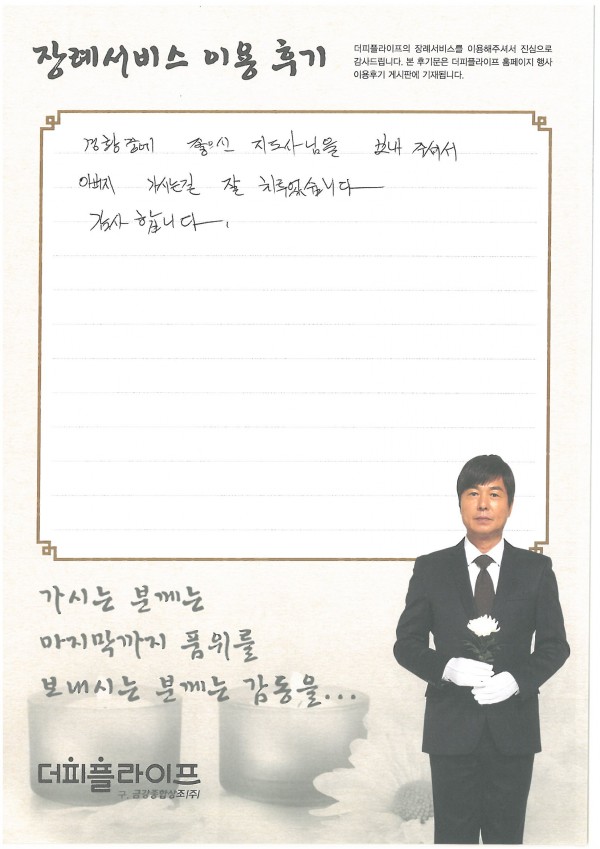 장례서비스 이용 후기
더피플라이프의 장례서비스를 이용해주셔서 진심으로
감사드립니다. 본 후기문은 더피플라이프 홈페이지 행사
이용후기 게시판에 기재됩니다.
경황중에 좋으신 지도사님을 보내 주셔서
아버지 가시는길 잘 치루었습니다
감사 합니다.
가시는 분께는
마지막까지 품위를
보내시는 분께는 감동을...
더피플라이프
구. 금강종합상조(주)